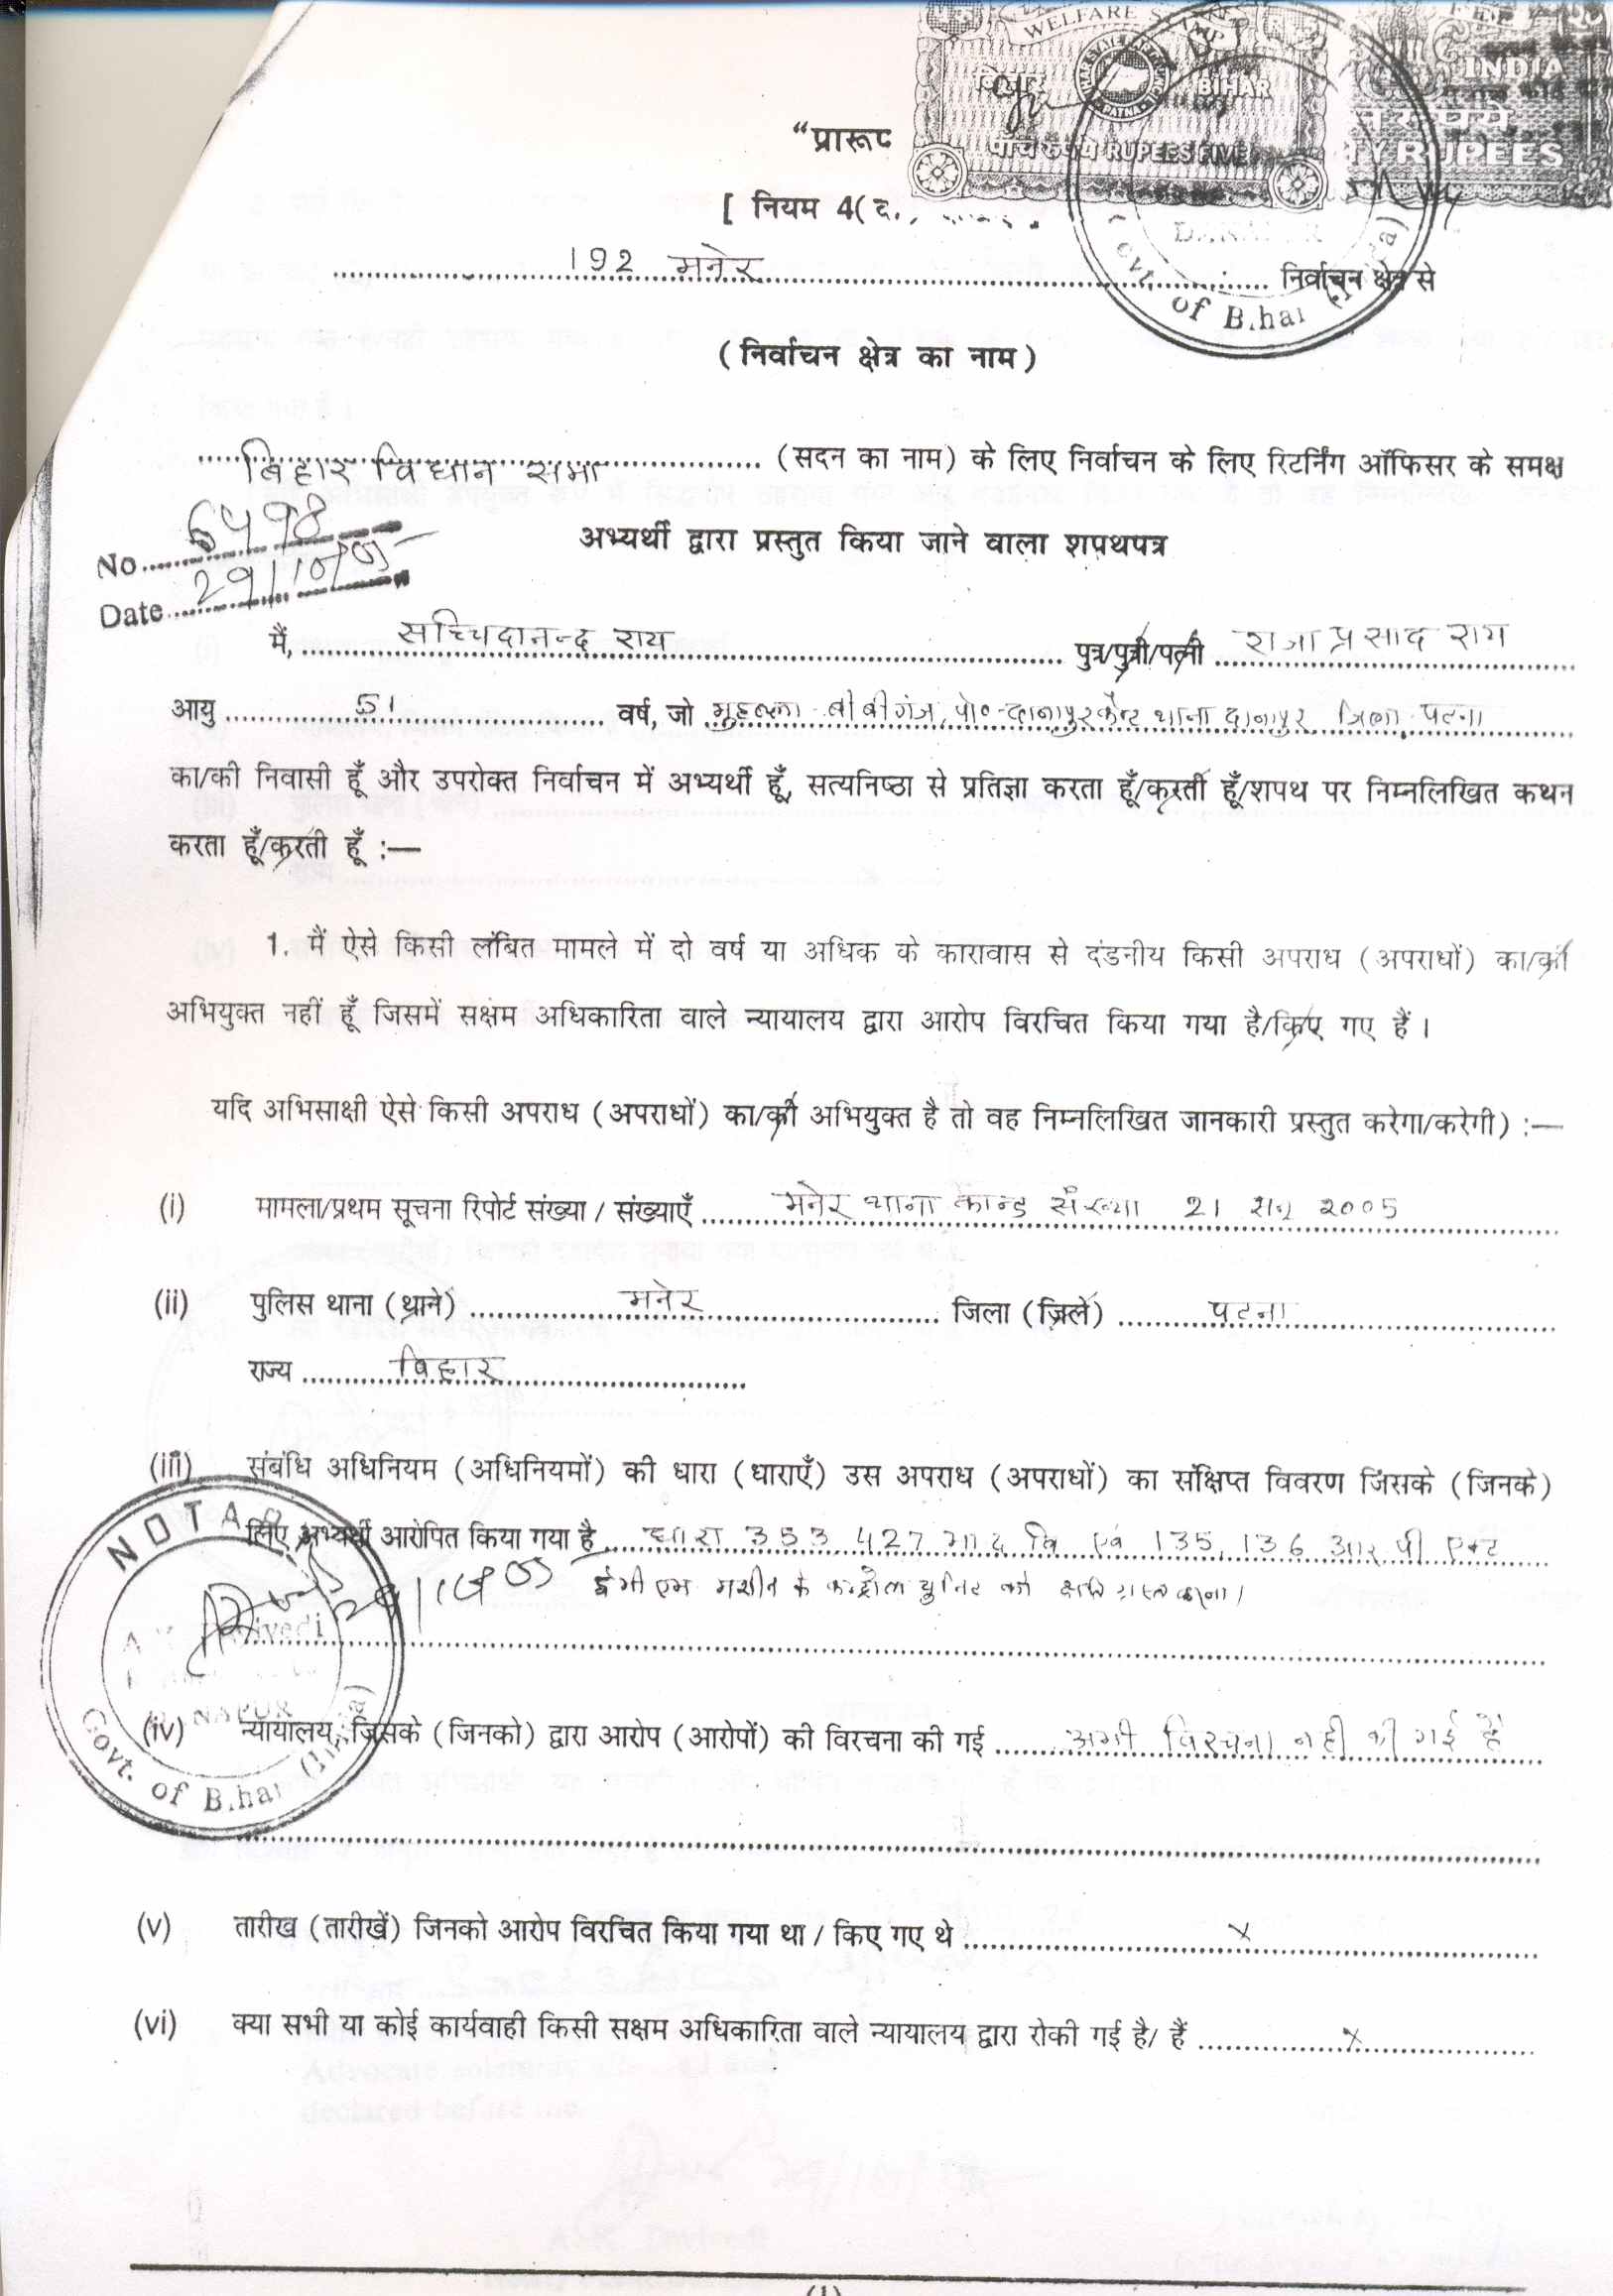 WELFARE
बिहार BIHAR
INDIA
पाँच रुपये RUPEES FIVE
RUPEES
"प्रारूप
[ नियम 4(
Govt. of Bihar
192 मनेर निर्वाचन क्षेत्र से
(निर्वाचन क्षेत्र का नाम)
बिहार विधान सभा (सदन का नाम) के लिए निर्वाचन के लिए रिटर्निंग ऑफिसर के समक्ष
अभ्यर्थी द्वारा प्रस्तुत किया जाने वाला शपथपत्र
No. 6498
Date 29/10/05
मैं, सच्चिदानन्द राय पुत्र/पुत्री/पत्नी राजा प्रसाद राय
आयु 51 वर्ष, जो मुहल्ला बीबीगंज, पो०-दानापुर कैन्ट थाना दानापुर जिला पटना
का/की निवासी हूँ और उपरोक्त निर्वाचन में अभ्यर्थी हूँ, सत्यनिष्ठा से प्रतिज्ञा करता हूँ/करती हूँ/शपथ पर निम्नलिखित कथन
करता हूँ/करती हूँ :—
1. मैं ऐसे किसी लंबित मामले में दो वर्ष या अधिक के कारावास से दंडनीय किसी अपराध (अपराधों) का/की
अभियुक्त नहीं हूँ जिसमें सक्षम अधिकारिता वाले न्यायालय द्वारा आरोप विरचित किया गया है/किए गए हैं।
यदि अभिसाक्षी ऐसे किसी अपराध (अपराधों) का/की अभियुक्त है तो वह निम्नलिखित जानकारी प्रस्तुत करेगा/करेगी) :—
(i) मामला/प्रथम सूचना रिपोर्ट संख्या / संख्याएँ मनेर थाना कान्ड संख्या 21 सन् 2005
(ii) पुलिस थाना (थाने) मनेर जिला (जिले) पटना
राज्य बिहार
(iii) संबंधि अधिनियम (अधिनियमों) की धारा (धाराएँ) उस अपराध (अपराधों) का संक्षिप्त विवरण जिसके (जिनके)
लिए अभ्यर्थी आरोपित किया गया है धारा 353 427 भा द वि एवं 135, 136 आर पी एक्ट
ई भी एम मशीन के कन्ट्रोल यूनिट को क्षति ग्रस्त करना।
NOTAR
29/10/05
DANAPUR
Govt. of Bihar (India)
(iv) न्यायालय, जिसके (जिनको) द्वारा आरोप (आरोपों) की विरचना की गई अभी विरचना नही की गई है
(v) तारीख (तारीखें) जिनको आरोप विरचित किया गया था / किए गए थे x
(vi) क्या सभी या कोई कार्यवाही किसी सक्षम अधिकारिता वाले न्यायालय द्वारा रोकी गई है/ हैं x
(1)